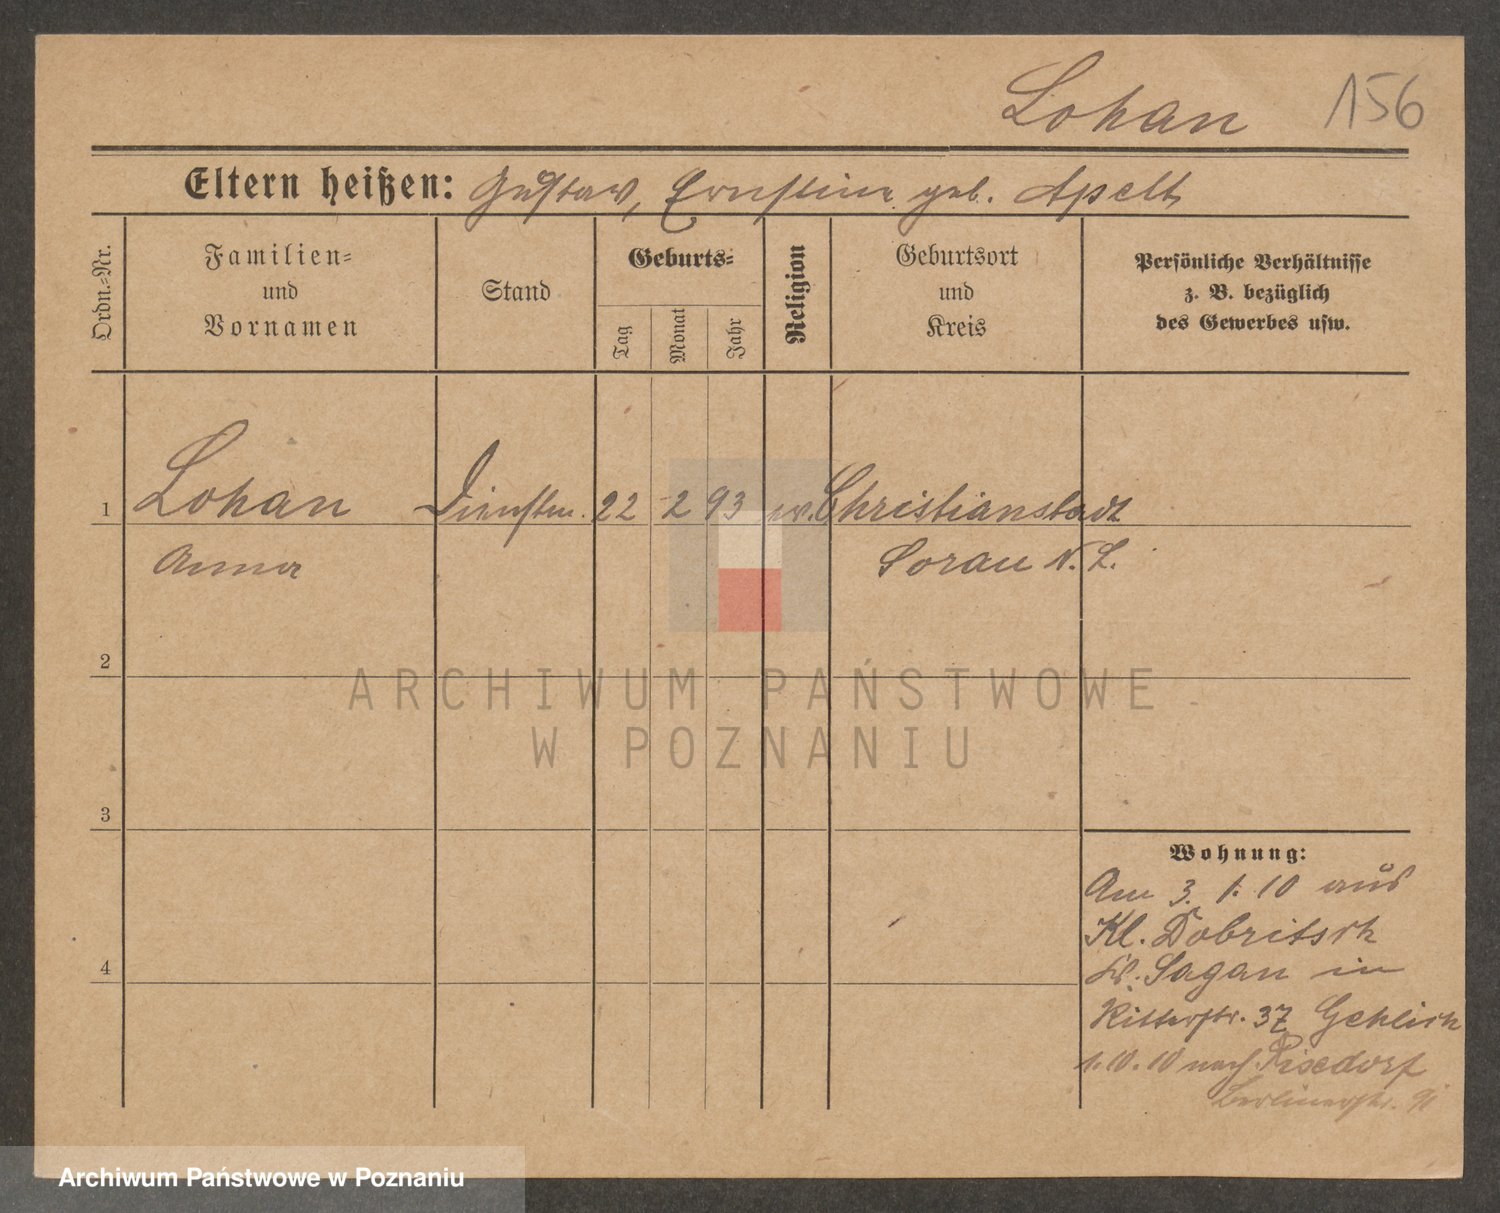 Lohan 156
Eltern heißen: Gustav, Ernstine geb. Apelt
Ordn.-Nr.
Familien-
und
Vornamen
Stand
Geburts-
Tag
Monat
Jahr
Religion
Geburtsort
und
Kreis
Persönliche Verhältnisse
z. B. bezüglich
des Gewerbes usw.
1 Lohan Dienstm. 22 2 93 ev. Christianstadt
Anna Sorau N. L.
2
ARCHIWUM PAŃSTWOWE
W POZNANIU
3
Wohnung:
Am 3. 1. 10 aus
Kl. Dobritsch
Kr. Sagan in
4
Ritterstr. 37 Gehlisch
1. 10. 10 nach Rixdorf
Berlinerstr.
Archiwum Państwowe w Poznaniu